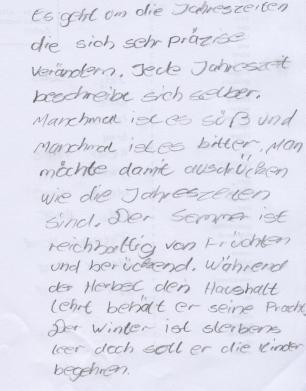 Es geht om die Jahreszeiten
die sich sehr präzise
verändern. Jede Jahreszeit
beschreibt sich selber.
Manchmal ist es süß und
Manchmal ist es bitter. Man
möchte damit ausdrücken
wie die Jahreszeiten
sind. Der Sommer ist
reichhaltig von Früchten
und berückend. Während
der Herbst den Haushalt
lehrt behält er seine Pracht.
Der Winter ist sterbens
leer doch soll er die Kinder
begehren.